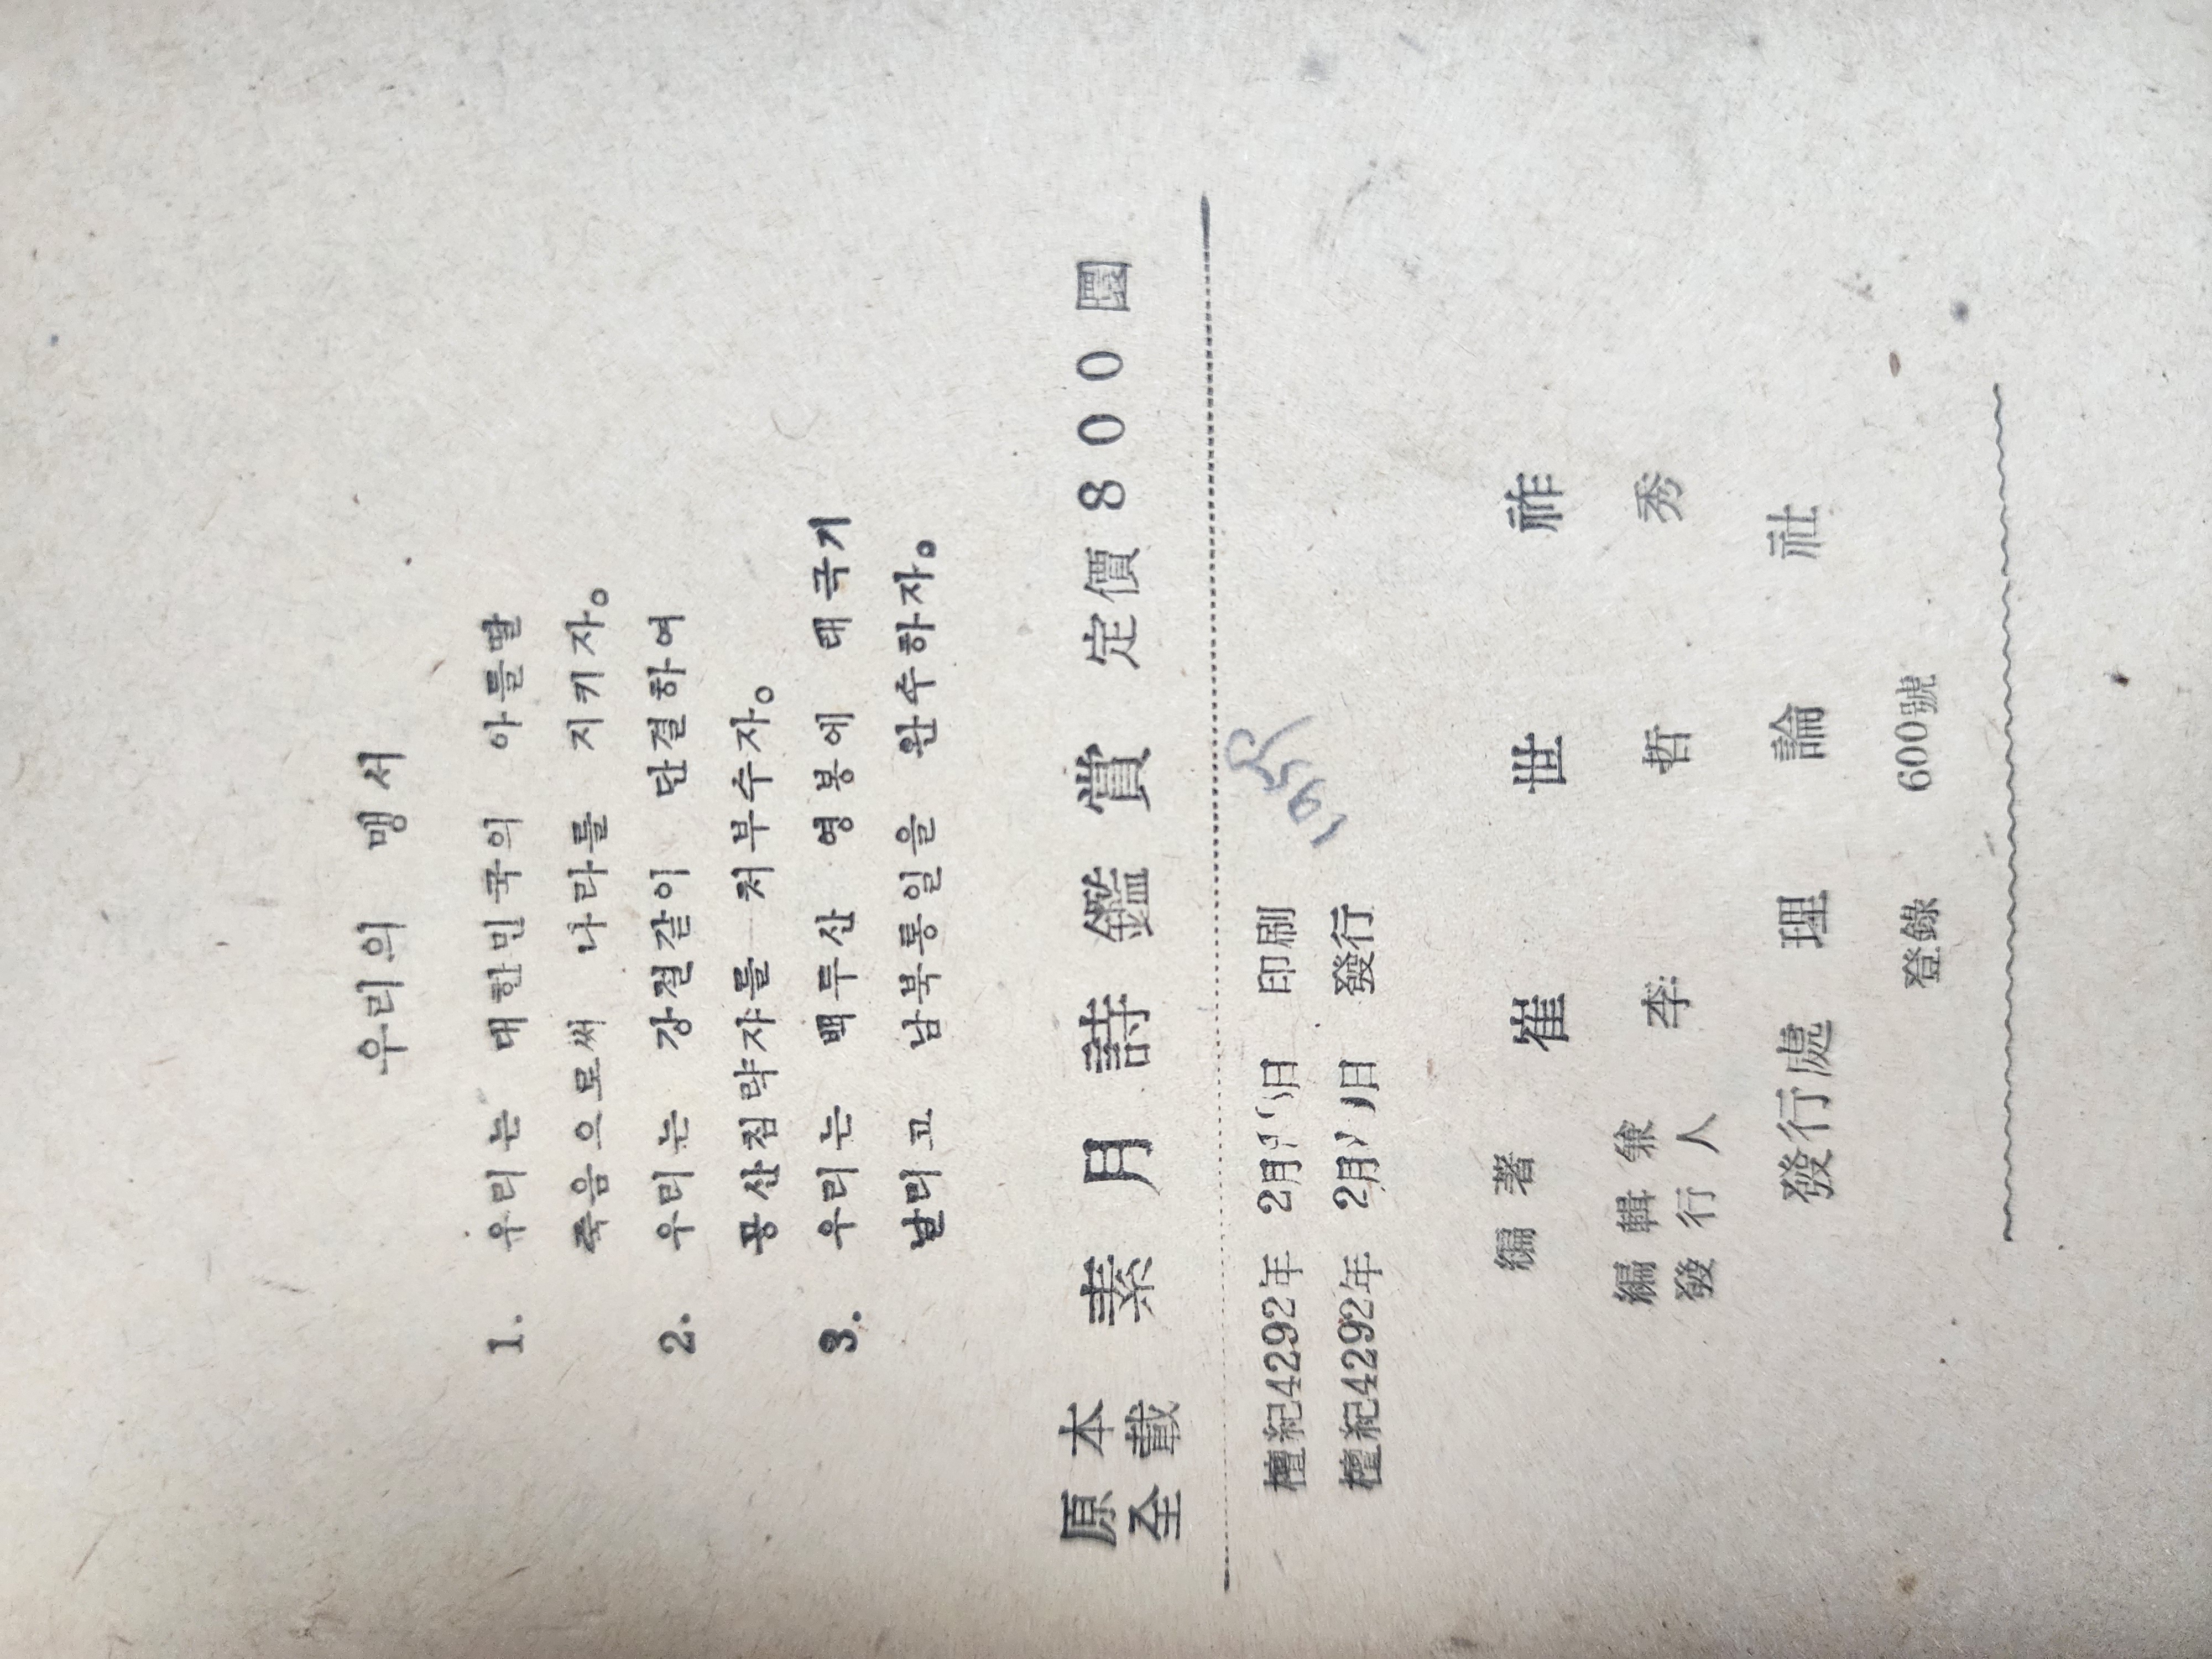 우리의 맹서
1. 우리는 대한민국의 아들딸
죽음으로써 나라를 지키자。
2. 우리는 강철같이 단결하여
공산침략자를 처부수자。
3. 우리는 백두산 영봉에 태극기
날리고 남북통일을 완수하자。
原本全載 素月詩鑑賞 定價800圜
檀紀4292年 2月 日 印刷
檀紀4292年 2月 日 發行
1959
編著 崔世祚
編輯兼發行人 李哲秀
發行處 理論社
登錄 600號